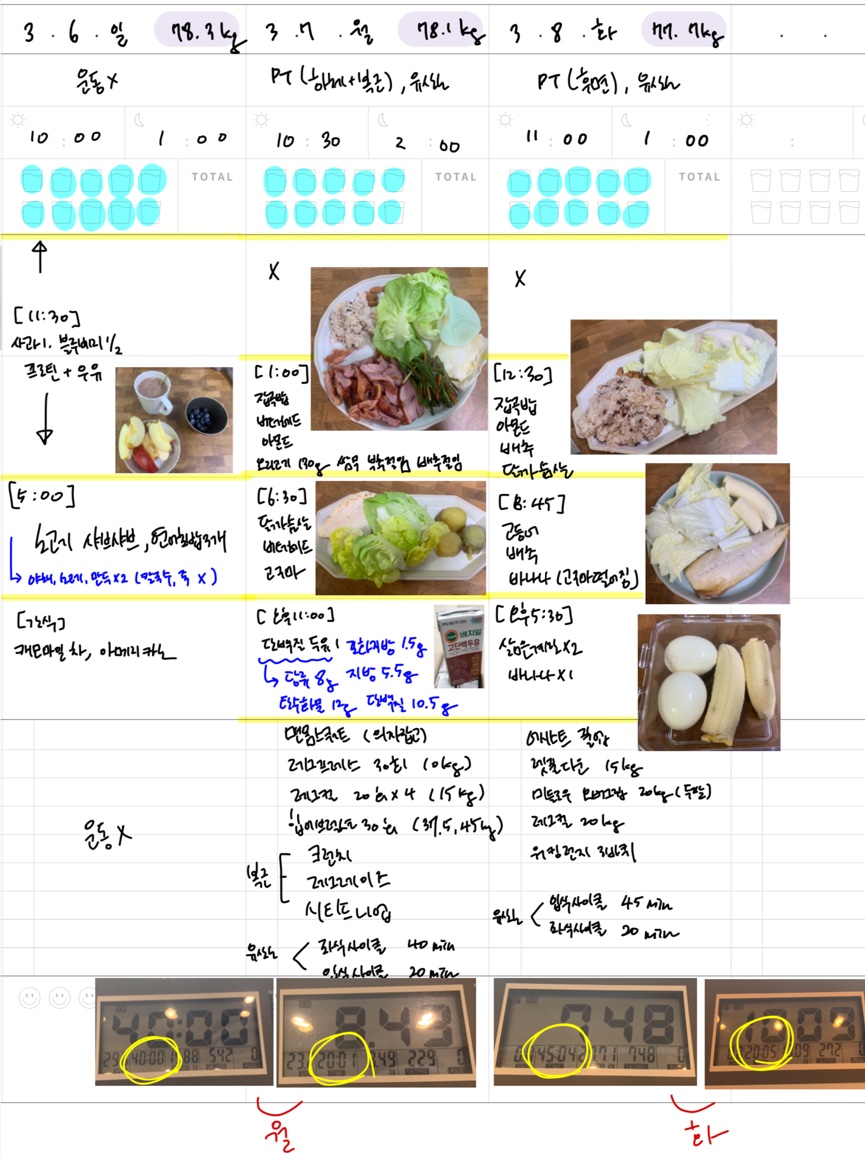 3 . 6 . 일
78.3kg
3 . 7 . 월
78.1kg
3 . 8 . 화
77.7kg
. .
운동 X
PT (하체+복근), 유산소
PT (후면), 유산소
10 : 00
1 : 00
10 : 30
2 : 00
11 : 00
1 : 00
:
TOTAL
TOTAL
TOTAL
[11:30]
사과1. 블루베리 1/2
프로틴 + 우유
[5:00]
소고기 샤브샤브, 연어초밥 2개
야채, 소고기, 만두x2 (칼국수, 죽 X)
[간식]
캐모마일 차, 아메리카노
X
[1:00]
잡곡밥
비타메이드
아몬드
오리고기 130g 쌈무 부추절임 배추절임
[6:30]
닭가슴살
비타메이드
고구마
[오후11:00]
단백질 두유 1 포화지방 1.5g
당류 8g 지방 5.5g
탄수화물 12g 단백질 10.5g
베지밀
고단백두유
X
[12:30]
잡곡밥
아몬드
배추
닭가슴살
[8:45]
고등어
배추
바나나 (고구마 떨어짐)
[오후5:30]
삶은계란 x2
바나나 x1
운동 X
맨몸 스쿼트 (의자잡고)
레그프레스 30회 1 (0kg)
레그컬 20회 x 4 (15kg)
힙어브덕션 30회 (37.5, 45kg)
복근
크런치
레그레이즈
시티드니업
유산소
좌식사이클 40 min
입식사이클 20 min
어시스트 풀업
랫풀다운 15kg
레그컬 20kg
워킹런지 3바퀴
유산소
입식사이클 45 min
좌식사이클 20 min
40:00
40:00
88
542
0
8.49
23
20:01
8.49
229
0
748
45:04
748
0
20:05
272
0
월
화